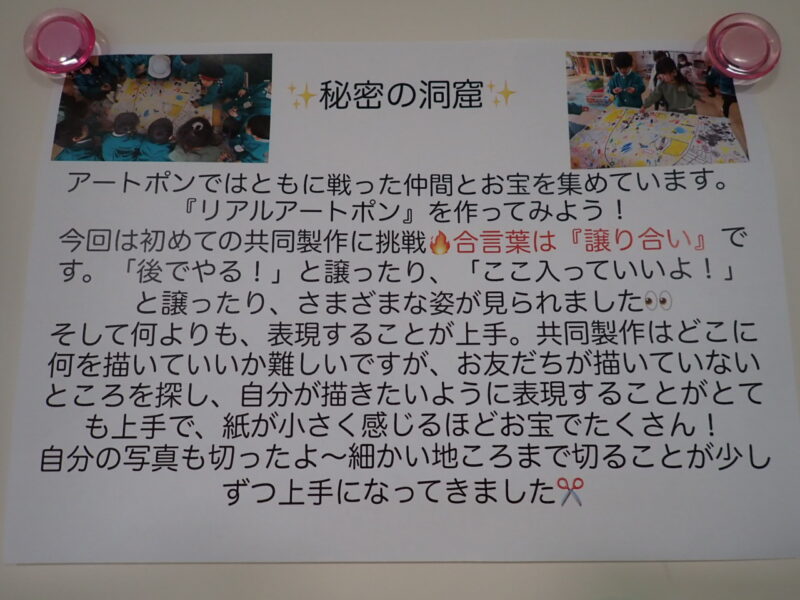 ✨秘密の洞窟✨
アートポンではともに戦った仲間とお宝を集めています。
『リアルアートポン』を作ってみよう！
今回は初めての共同製作に挑戦🔥合言葉は『譲り合い』で
す。「後でやる！」と譲ったり、「ここ入っていいよ！」
と譲ったり、さまざまな姿が見られました👀
そして何よりも、表現することが上手。共同製作はどこに
何を描いていいか難しいですが、お友だちが描いていない
ところを探し、自分が描きたいように表現することがとて
も上手で、紙が小さく感じるほどお宝でたくさん！
自分の写真も切ったよ〜細かい地ころまで切ることが少し
ずつ上手になってきました✂️